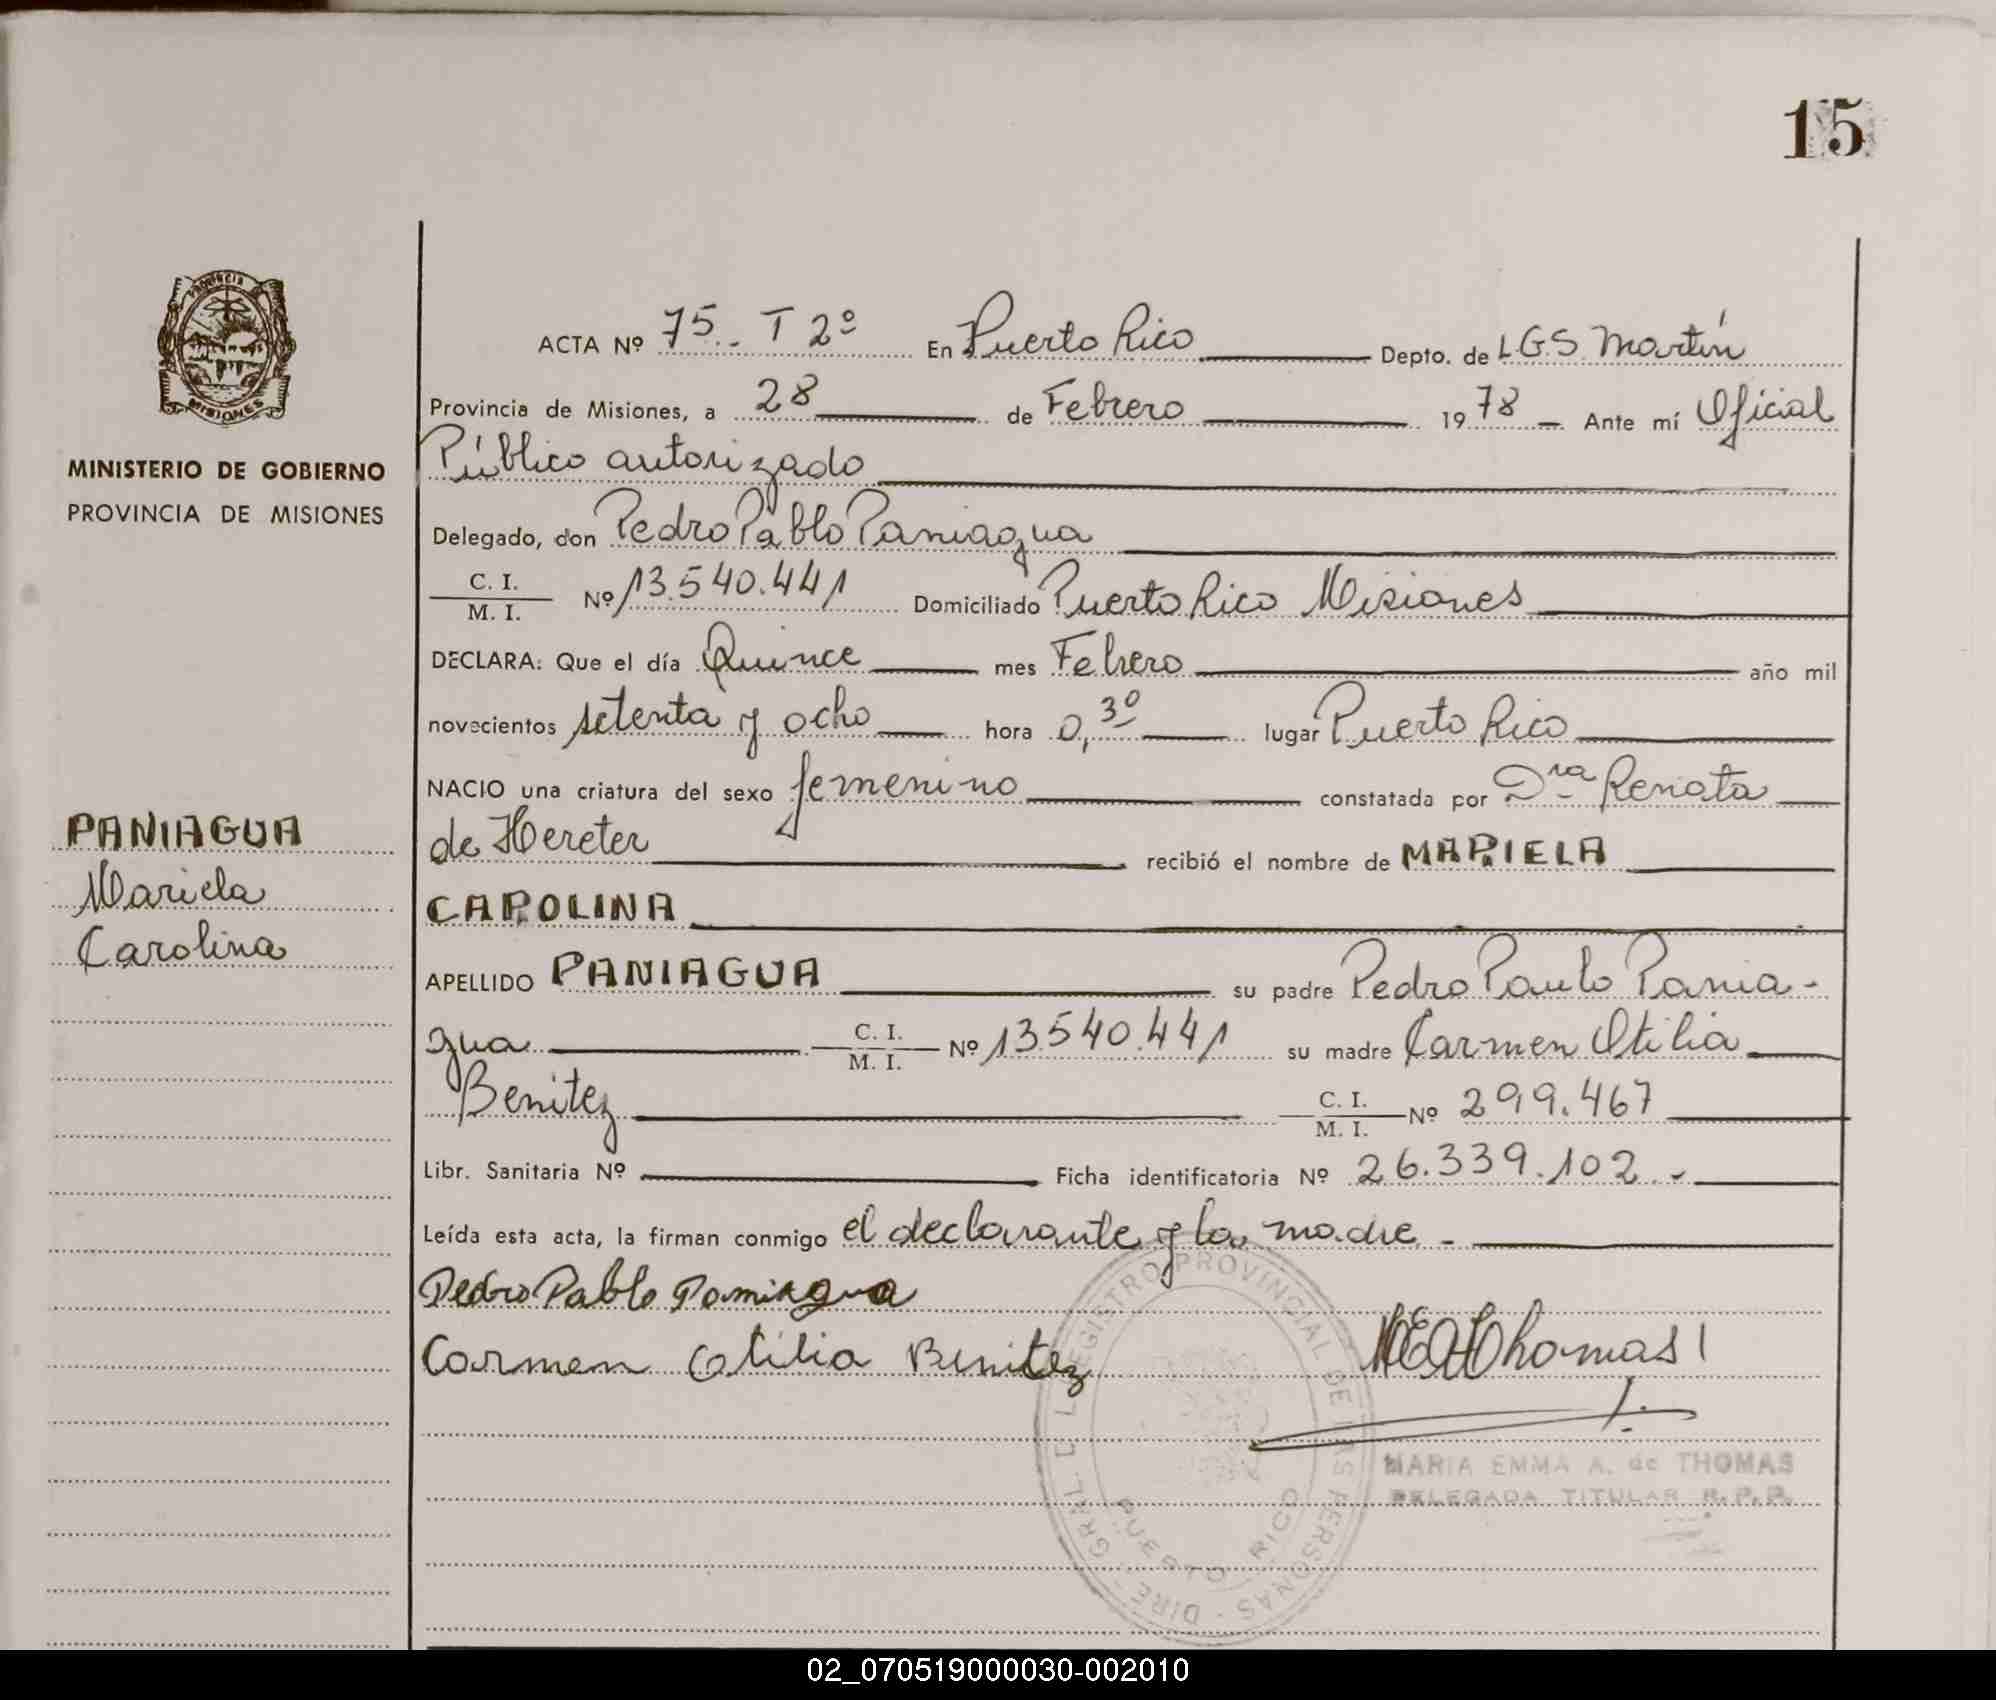 15
PROVINCIA
MISIONES
MINISTERIO DE GOBIERNO
PROVINCIA DE MISIONES
PANIAGUA
Mariela
Carolina
ACTA Nº 75.. T 2º En Puerto Rico Depto. de L.G.S. Martín
Provincia de Misiones, a 28 de Febrero 1978 Ante mí Oficial
Público autorizado
Delegado, don Pedro Pablo Paniagua
C. I. / M. I. Nº 13.540.441 Domiciliado Puerto Rico Misiones
DECLARA: Que el día Quince mes Febrero año mil
novecientos setenta y ocho hora 0,30 lugar Puerto Rico
NACIO una criatura del sexo femenino constatada por Dra Renata
de Hereter recibió el nombre de MARIELA
CAROLINA
APELLIDO PANIAGUA su padre Pedro Paulo Pania-
gua C. I. / M. I. Nº 13.540.441 su madre Carmen Otilia
Benitez C. I. / M. I. Nº 299.467
Libr. Sanitaria Nº Ficha identificatoria Nº 26.339.102.-
Leída esta acta, la firman conmigo el declarante y la madre.-
Pedro Pablo Paniagua
Carmen Otilia Benitez MEAThomas
DIRE. GRAL. DEL REGISTRO PROVINCIAL DE LAS PERSONAS
PUERTO RICO
MARIA EMMA A. de THOMAS
DELEGADA TITULAR R.P.P.
02_070519000030-002010